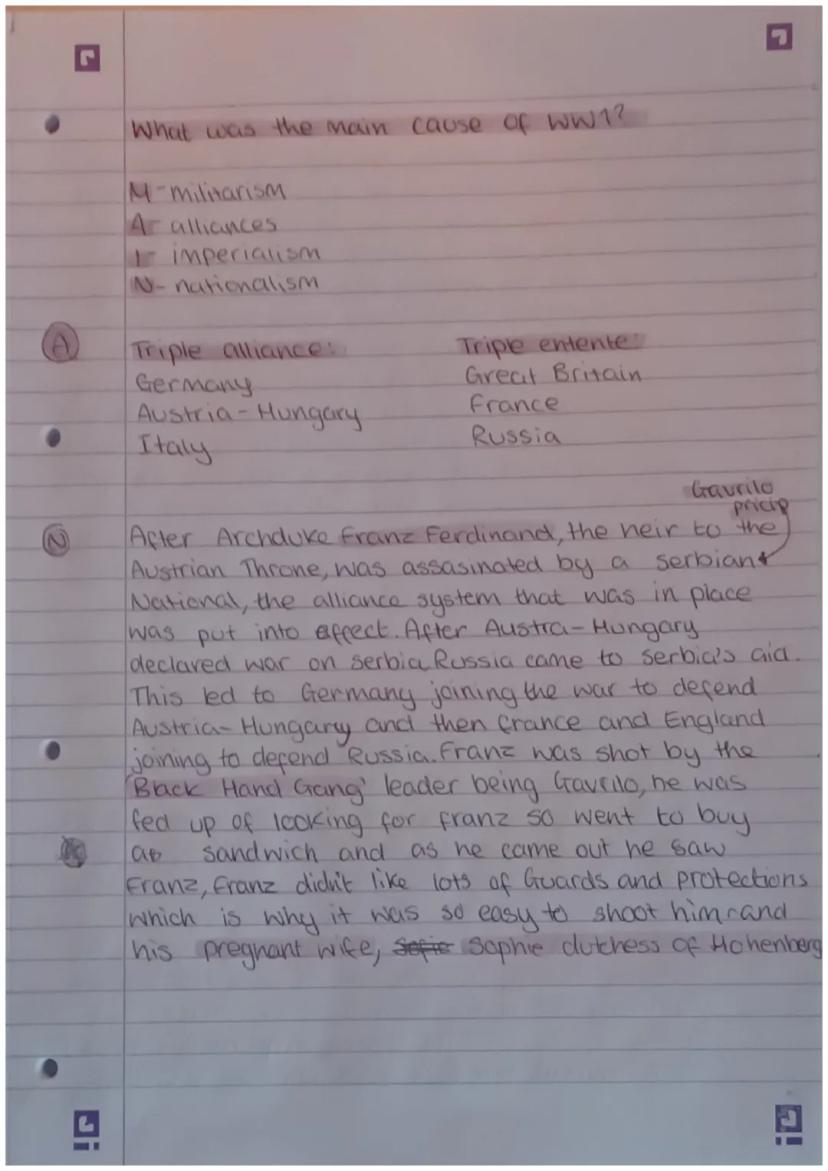 What was the main cause of WW1?
M - militarism
A - alliances
I - imperialism
N - nationalism
A
Triple alliance:
Germany
Austria - Hungary
Italy
Triple entente:
Great Britain
France
Russia
Gavrilo
pricip
N
After Archduke Franz Ferdinand, the heir to the
Austrian Throne, was assasinated by a serbian
National, the alliance system that was in place
was put into effect. After Austra - Hungary
declared war on serbia, Russia came to serbia's aid.
This led to Germany joining the war to defend
Austria - Hungary and then france and England
joining to defend Russia. Franz was shot by the
'Black Hand Gang' leader being Gavrilo, he was
fed up of looking for franz so went to buy
a sandwich and as he came out he saw
Franz, franz didn't like lots of Guards and protections
which is why it was so easy to shoot him and
his pregnant wife, Sofie Sophie dutchess of Hohenberg